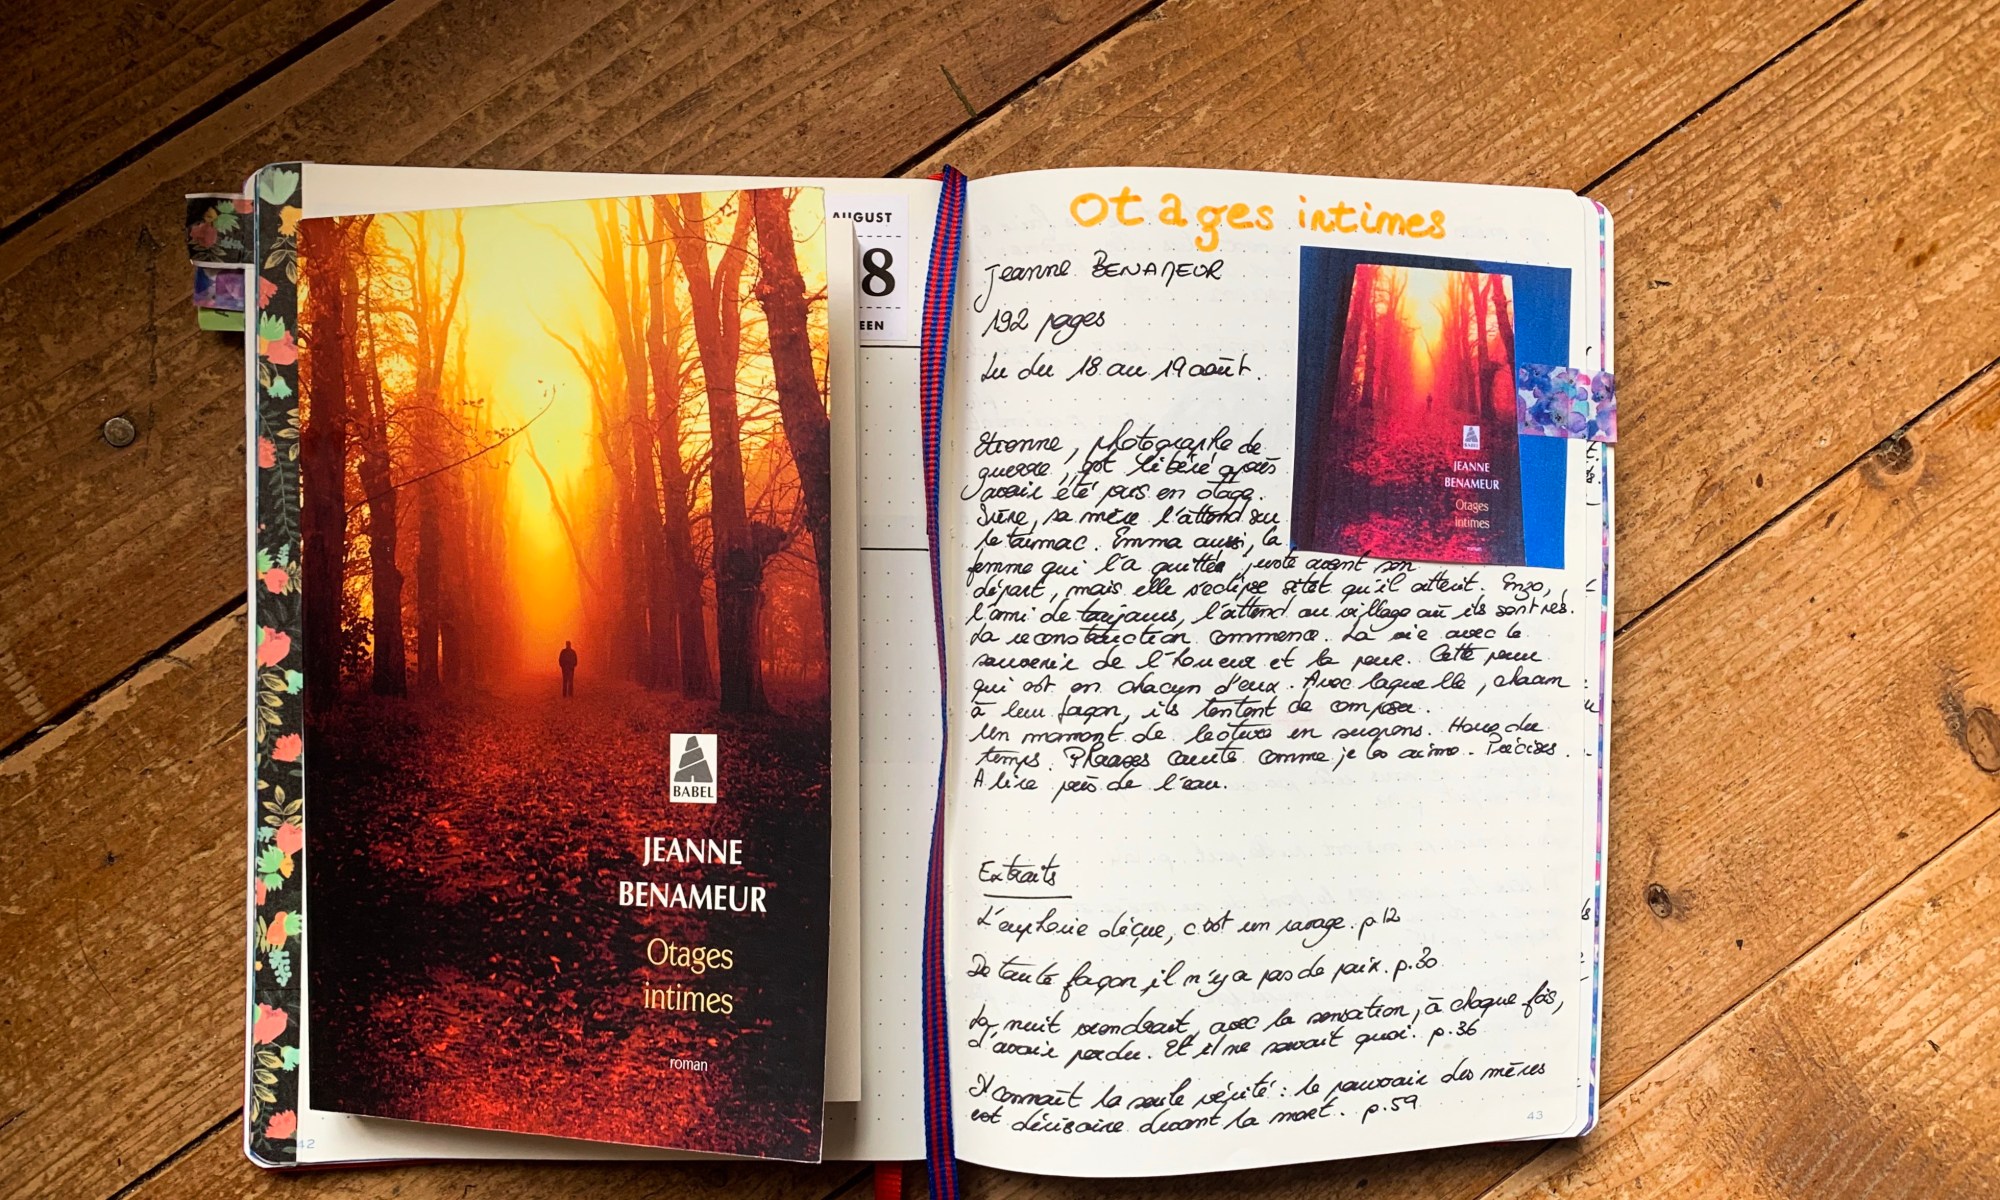 BABEL
JEANNE
BENAMEUR
Otages
intimes
roman
42
AUGUST
8
EEN
Otages intimes
Jeanne BENAMEUR
192 pages
Lu du 18 au 19 août.
BABEL
JEANNE
BENAMEUR
Otages
intimes
roman
Etienne, photographe de
guerre, est libéré après
avoir été pris en otage.
Irène, sa mère l'attend sur
le tarmac. Emma aussi, la
femme qui l'a quitté juste avant son
départ, mais elle s'éclipse sitôt qu'il atterit. Enzo,
l'ami de toujours, l'attend au village où ils sont nés.
La reconstruction commence. La vie avec le
souvenir de l'horreur et la peur. Cette peur
qui est en chacun d'eux. Avec laquelle, chacun
à leur façon, ils tentent de composer.
Un moment de lecture en suspens. Hors du
temps. Phrases courtes comme je les aime. Précises.
A lire près de l'eau.
Extraits
L'euphorie déçue, c'est un ravage. p.12
De toute façon, il n'y a pas de paix. p.30
La nuit viendrait, avec la sensation, à chaque fois,
d'avoir perdu. Et il ne savait quoi. p.36
Il connaît la seule vérité : le pouvoir des mères
est dérisoire devant la mort. p.59
43